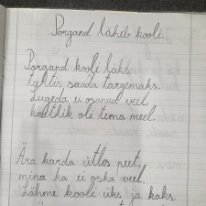 Porgand läheb kooli.
Porgand kooli läks
tahtis saada targemaks.
Lugeda ei osanud veel,
kuid kõik oli tema meel.
Ära karda ütles neet,
mina ka ei oska veel.
Lähme kooli üks ja kaks